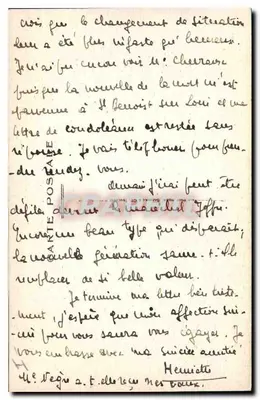 crois que le changement de situation
leur a été plus néfaste qu'heureux.
Je n'ai pu encore voir Mr
puisque la nouvelle de la mort m'est
parvenue à St Benoist sur Loire et ma
lettre de condoléances est restée sans
réponse. Je vais téléphoner pour pren-
dre rendez-vous.
Demain j'irai peut être
défiler devant le maréchal Joffre
Encore un beau type qui disparaît,
la nouvelle génération saura-t-elle
remplacer de si belle valeur.
Je termine ma lettre bien triste-
ment, j'espère que mon affection
pour vous saura vous égayer. Je
vous embrasse avec ma sincère amitié
Henriette
Mr a.t. reçu nos vœux.
CARTE POSTALE